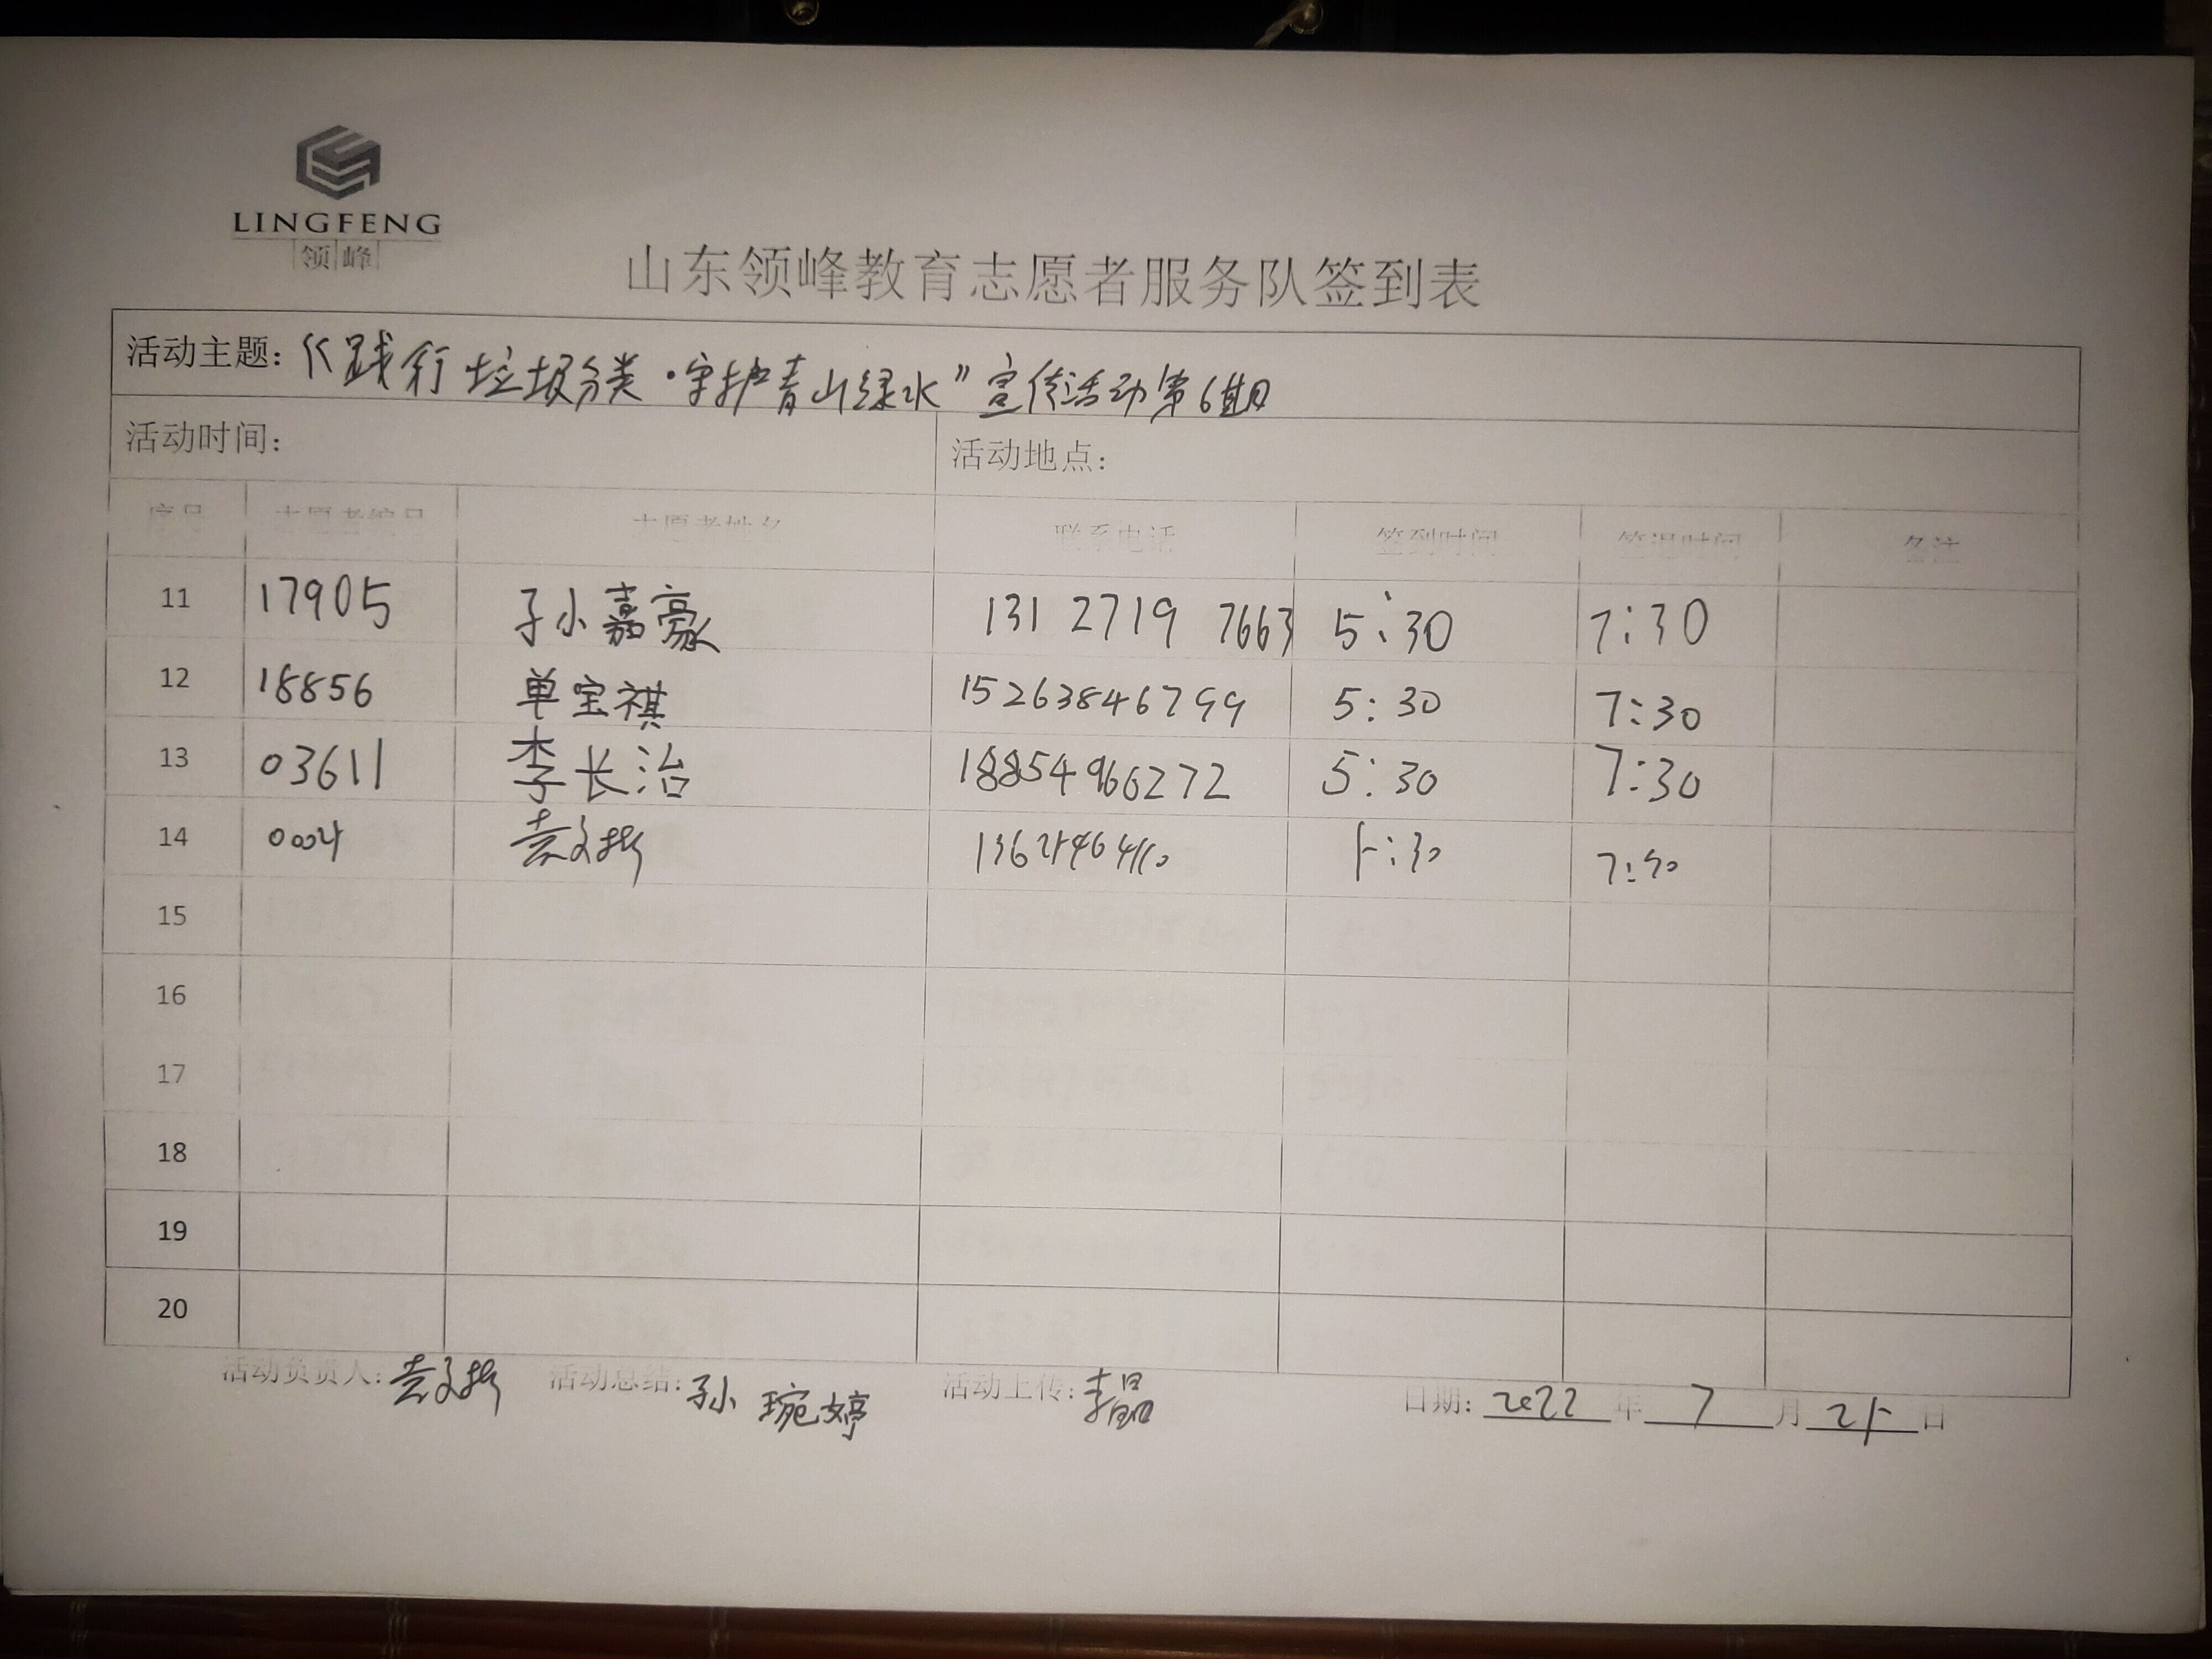 LINGFENG
领峰
山东领峰教育志愿者服务队签到表
活动主题：“践行垃圾分类·守护青山绿水”宣传活动第6期
活动时间： 活动地点：
序号 志愿者编号 志愿者姓名 联系电话 签到时间 签退时间 备注
11 17905 孙嘉豪 131 2719 7663 5:30 7:30
12 18856 单宝祺 15263846799 5:30 7:30
13 03611 李长治 18854966272 5:30 7:30
14 5:30 7:30
15
16
17
18
19
20
活动负责人： 活动总结：孙琬婷 活动上传：李晶 日期：2022年7月25日